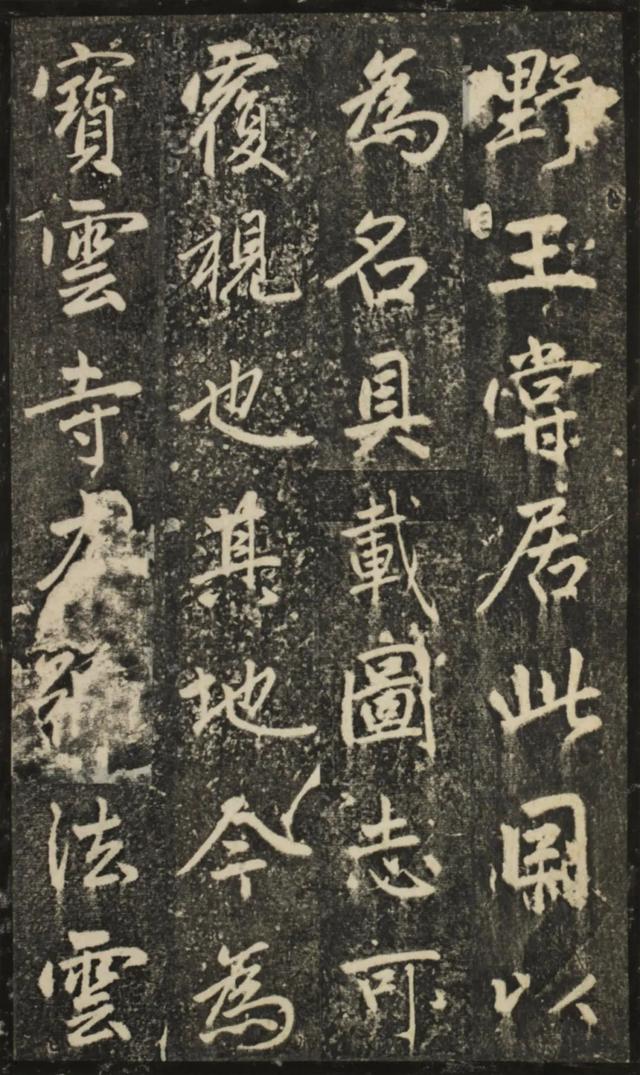 野王嘗居此以
為名具載圖志可
覆視也其地今為
寶雲寺法雲